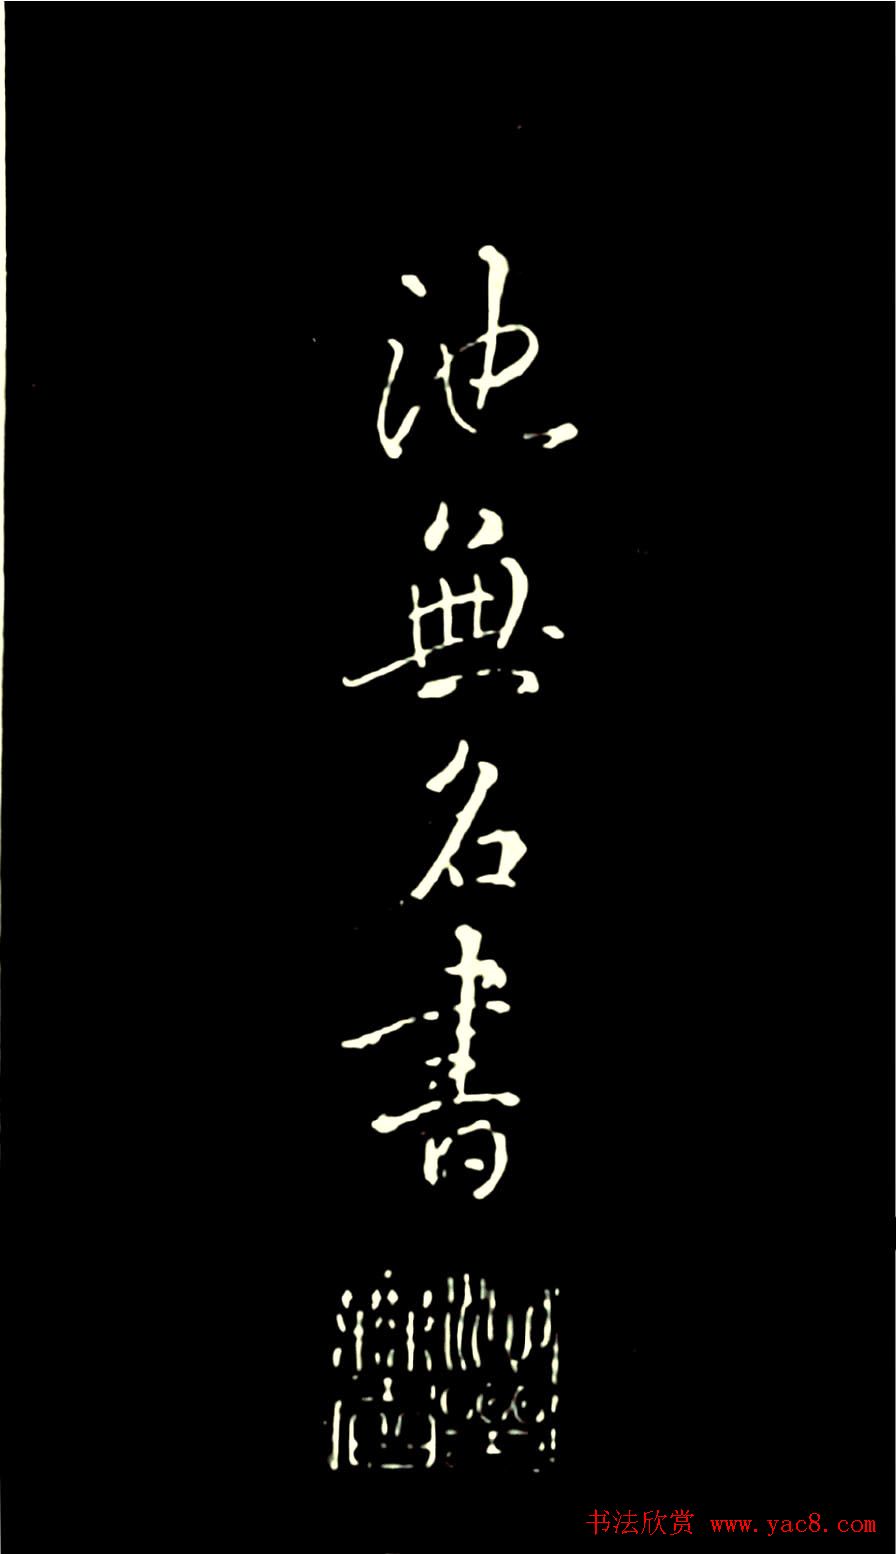 池無名書
书法欣赏 www.yac8.com